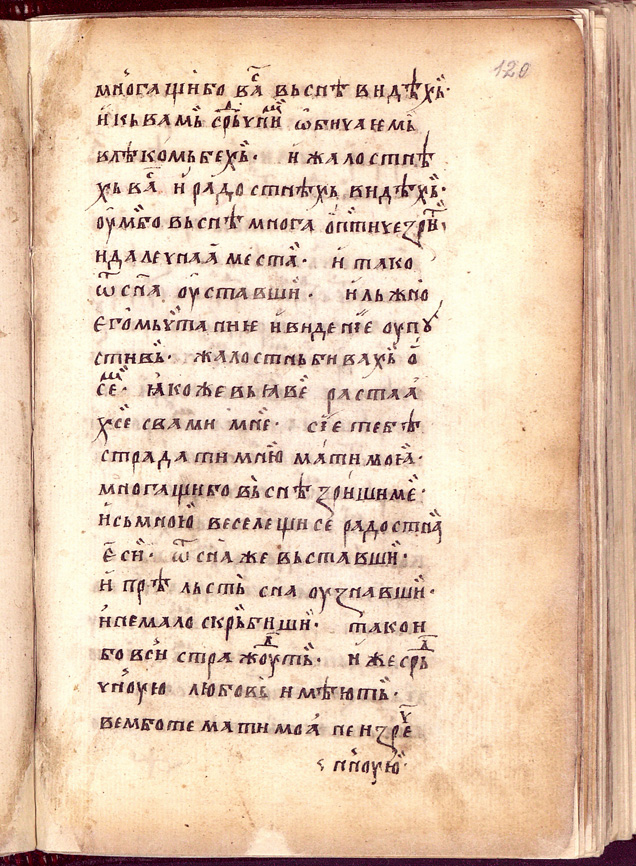 120
многащи бо ва́с вьснѣ видѣхь·
и кь вамь срⷣьчнꙵи ѡбичаемь
влѣкомь бехь· и жалостнѣ
хь ва́с и радостнѣхь видѣхь·
оумбо вьснѣ многа
и далечнаа места· и тако
ѿ сна оуставши· и льжно
его мьчтаниѥ и видение оупꙋ
стивь· жалостнь бивахь о
се· ꙗкоже вь ꙗве растаа
хсе с вами мне· сїе тебѣ
страдати мню мати моꙗ·
многащи бо вьснѣ зриши ме·
и сь мною веселещи се радостна
еси· ѿ сна же вьставши·
и прѣльсть сна оузнавши·
и немало скрьбиши· тако и
бо вси стражоуть· иже срⷣь
чноую любовь имѣють·
вем бо те мати моа неизре
ч нноую·